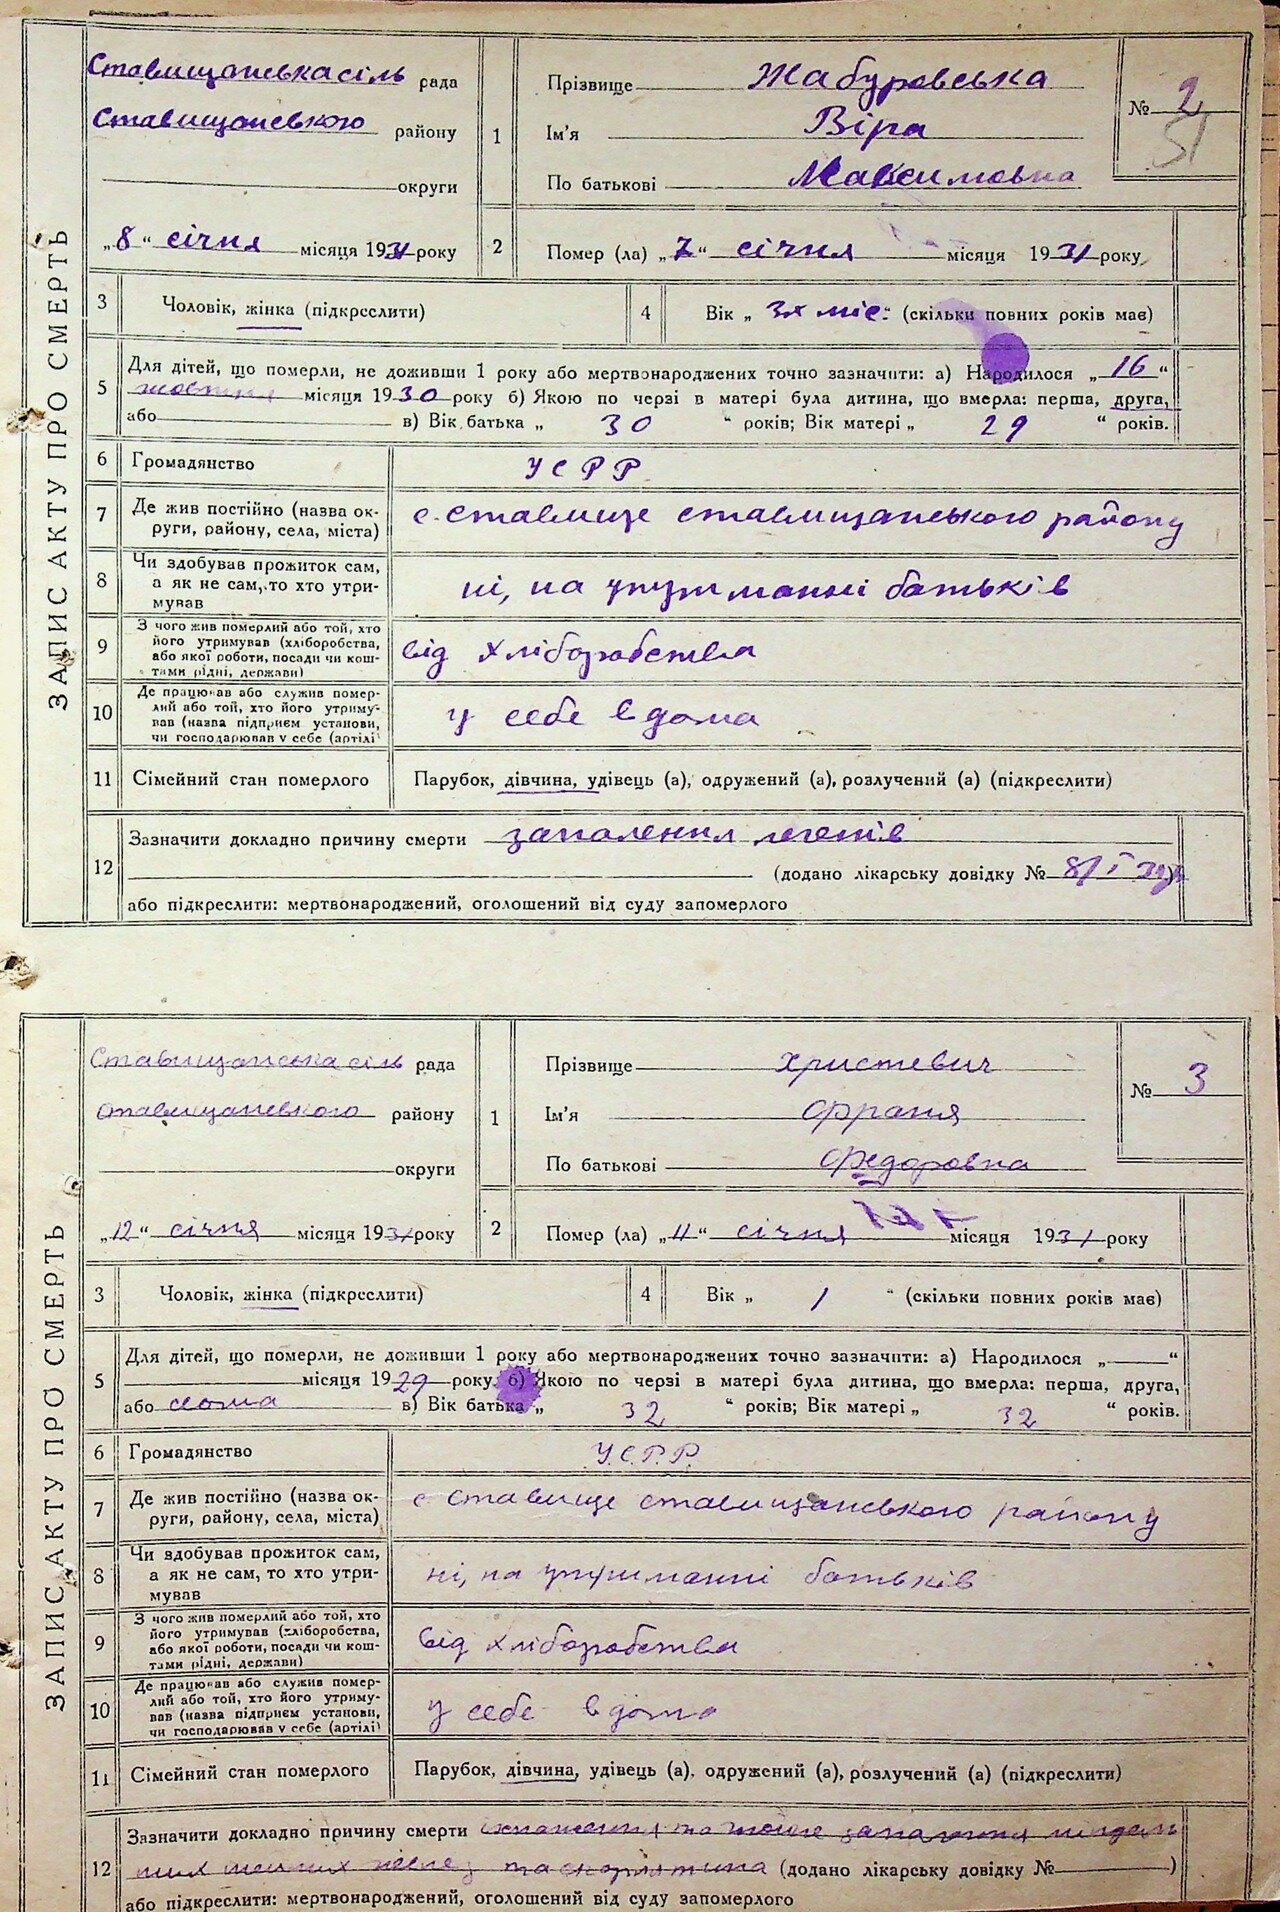 ЗАПИС АКТУ ПРО СМЕРТЬ
Ставищанська сіль рада
Ставищанського району
округи
„8“ січня місяця 1931 року
1 Прізвище Жабуровська
Ім'я Віра
По батькові Максимовна
№ 2
51
2 Помер (ла) „7“ січня місяця 1931 року
3 Чоловік, жінка (підкреслити)
4 Вік „ 3х міс.“ (скільки повних років має)
5 Для дітей, що померли, не доживши 1 року або мертвонароджених точно зазначити: а) Народилося „16“
жовтня місяця 1930 року б) Якою по черзі в матері була дитина, що вмерла: перша, друга,
або в) Вік батька „ 30 “ років; Вік матері „ 29 “ років.
6 Громадянство УСРР
7 Де жив постійно (назва ок-
руги, району, села, міста) с. Ставище Ставищанського району
8 Чи здобував прожиток сам,
а як не сам, то хто утри-
мував ні, на утриманні батьків
9 З чого жив померлий або той, хто
його утримував (хліборобства,
або якої роботи, посади чи кош-
тами рідні, держави) від хліборобства
10 Де працював або служив помер-
лий або той, хто його утриму-
вав (назва підприєм установи,
чи господарював у себе (артілі) у себе вдома
11 Сімейний стан померлого Парубок, дівчина, удівець (а), одружений (а), розлучений (а) (підкреслити)
12 Зазначити докладно причину смерти запалення легенів
(додано лікарську довідку № 8/I 31р)
або підкреслити: мертвонароджений, оголошений від суду запомерлого
ЗАПИС АКТУ ПРО СМЕРТЬ
Ставищанська сіль рада
Ставищанського району
округи
„12“ січня місяця 1931 року
1 Прізвище Христевич
Ім'я Франя
По батькові Федоровна
№ 3
2 Помер (ла) „11“ січня місяця 1931 року
3 Чоловік, жінка (підкреслити)
4 Вік „ 1 “ (скільки повних років має)
5 Для дітей, що померли, не доживши 1 року або мертвонароджених точно зазначити: а) Народилося „ “
місяця 1929 року б) Якою по черзі в матері була дитина, що вмерла: перша, друга,
або сьома в) Вік батька „ 32 “ років; Вік матері „ 32 “ років.
6 Громадянство У.С.Р.Р.
7 Де жив постійно (назва ок-
руги, району, села, міста) с Ставище Ставищанського району
8 Чи здобував прожиток сам,
а як не сам, то хто утри-
мував ні, на утриманні батьків
9 З чого жив померлий або той, хто
його утримував (хліборобства,
або якої роботи, посади чи кош-
тами рідні, держави) від хліборобства
10 Де працював або служив помер-
лий або той, хто його утриму-
вав (назва підприєм установи,
чи господарював у себе (артілі) у себе вдома
11 Сімейний стан померлого Парубок, дівчина, удівець (а), одружений (а), розлучений (а) (підкреслити)
12 Зазначити докладно причину смерти запалення
та скорлятина (додано лікарську довідку № )
або підкреслити: мертвонароджений, оголошений від суду запомерлого